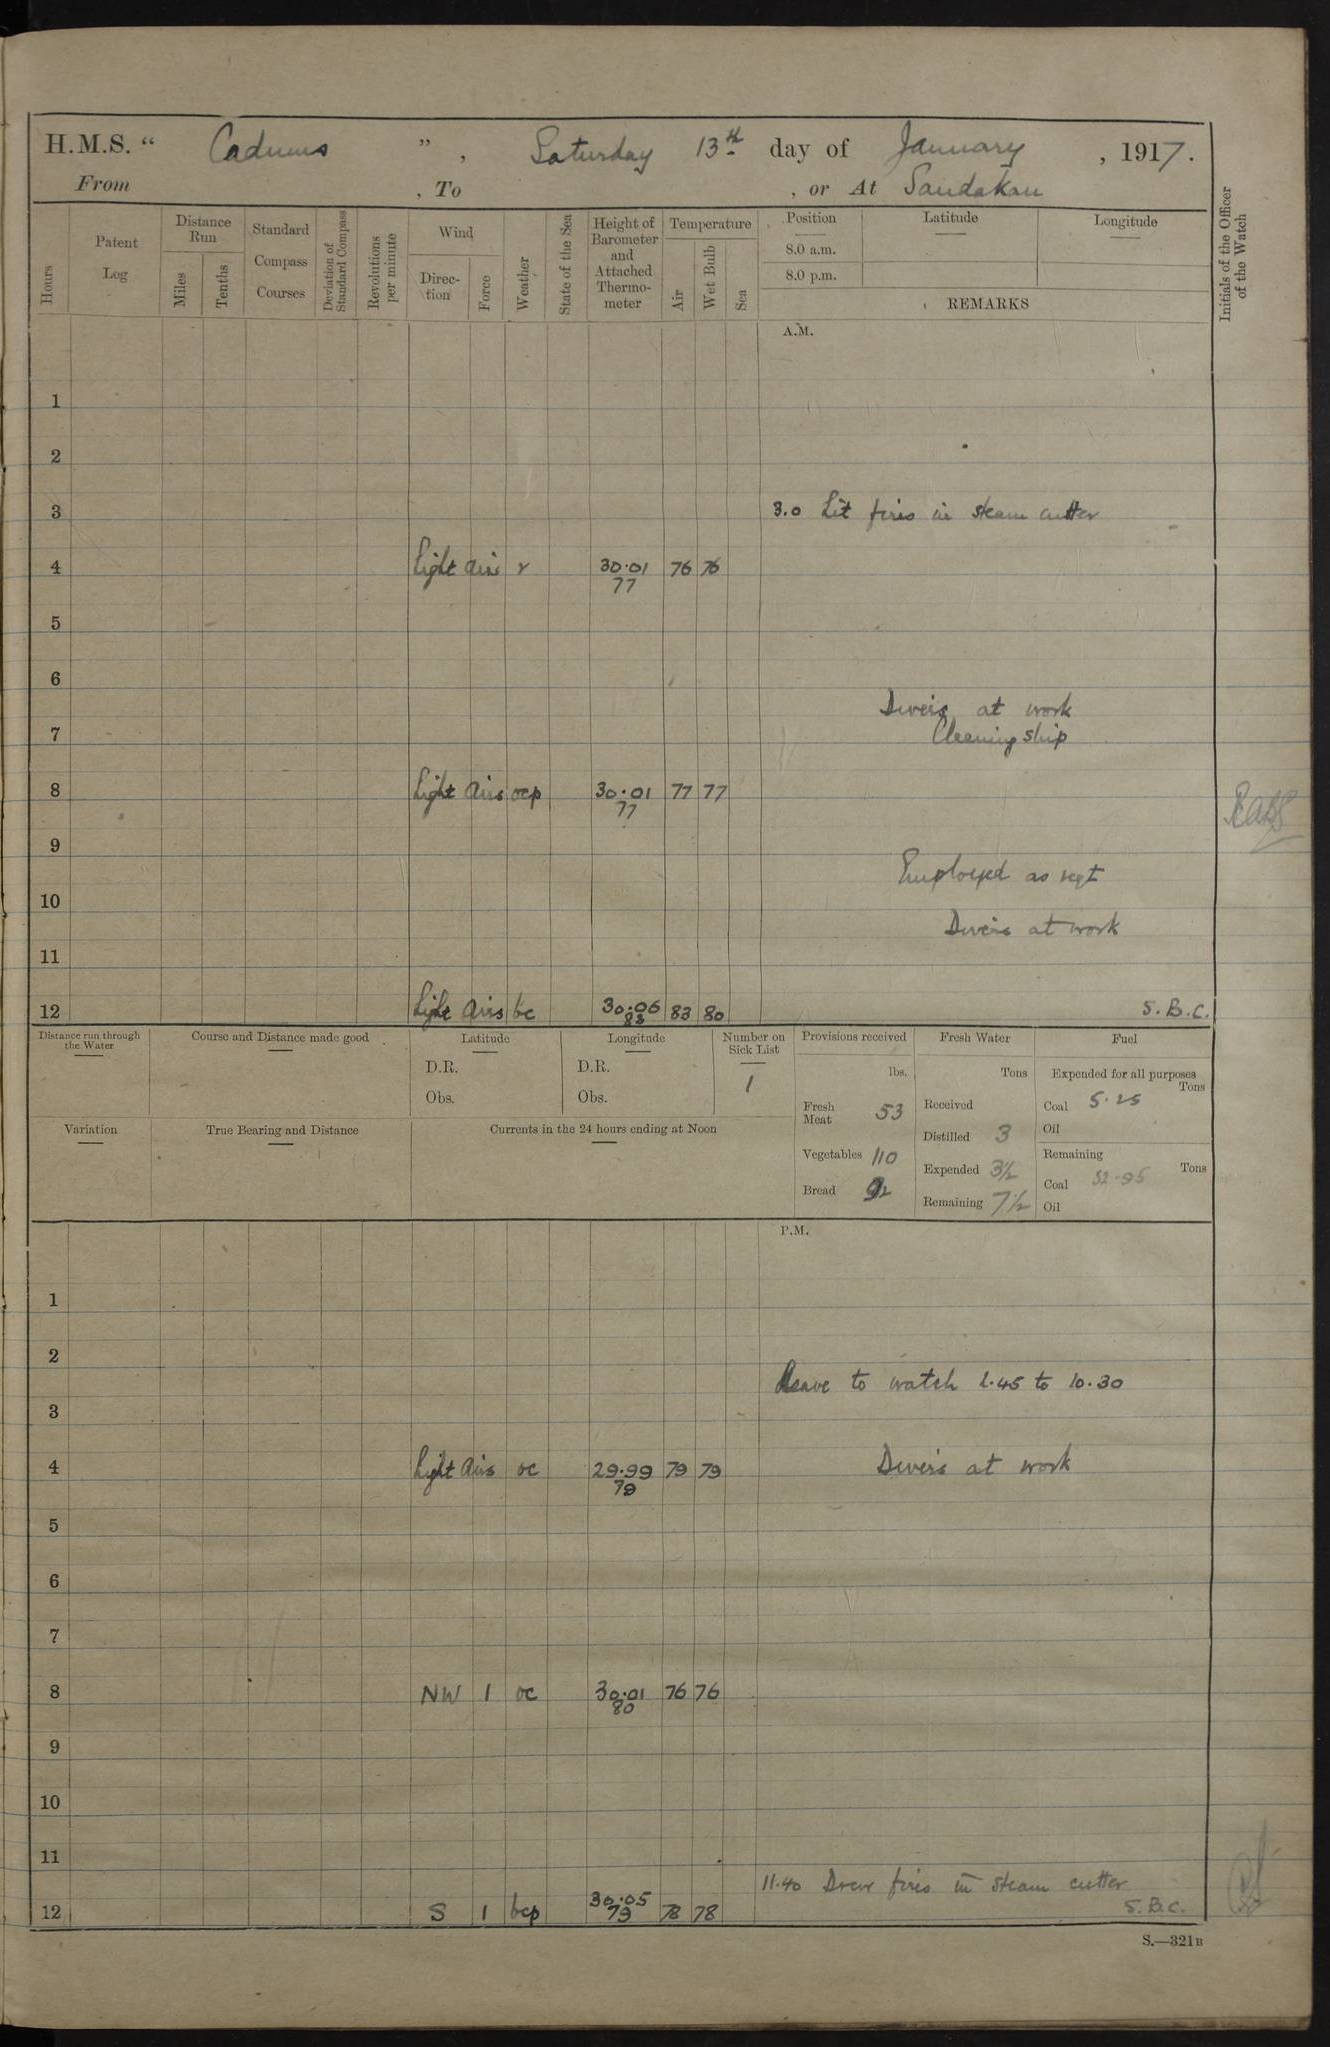 H.M.S. " Cadmus ", Saturday 13th day of January, 1917.
From , To , or At Sandakan
Hours
Patent Log
Distance Run
Miles
Tenths
Standard Compass Courses
Deviation of Standard Compass
Revolutions per minute
Wind
Direction
Force
Weather
State of the Sea
Height of Barometer and Attached Thermometer
Temperature
Air
Wet Bulb
Sea
Position
Latitude
Longitude
8.0 a.m.
8.0 p.m.
REMARKS
Initials of the Officer of the Watch
A.M.
1
2
3 3.0 Lit fires in steam cutter
4 Light airs r 30.01 76 76
77
5
6
Divers at work
7 Cleaning ship
8 Light airs ocp 30.01 77 77
77
9
Employed as reqt
10
Divers at work
11
12 Light airs bc 30.06 83 80 S.B.C.
83
Distance run through the Water
Course and Distance made good
Latitude
D.R.
Obs.
Longitude
D.R.
Obs.
Number on Sick List
1
Provisions received
lbs.
Fresh Meat 53
Vegetables 110
Bread 92
Fresh Water
Tons
Received
Distilled 3
Expended 3½
Remaining 7½
Fuel
Expended for all purposes
Tons
Coal 5.25
Oil
Remaining
Tons
Coal 52.95
Oil
Variation
True Bearing and Distance
Currents in the 24 hours ending at Noon
P.M.
1
2
Leave to watch 1.45 to 10.30
3
4 Light airs oc 29.99 79 79 Divers at work
79
5
6
7
8 NW 1 oc 30.01 76 76
80
9
10
11
11.40 Drew fires in steam cutter
12 S 1 bcp 30.05 78 78 S.B.C.
79
S.—321B